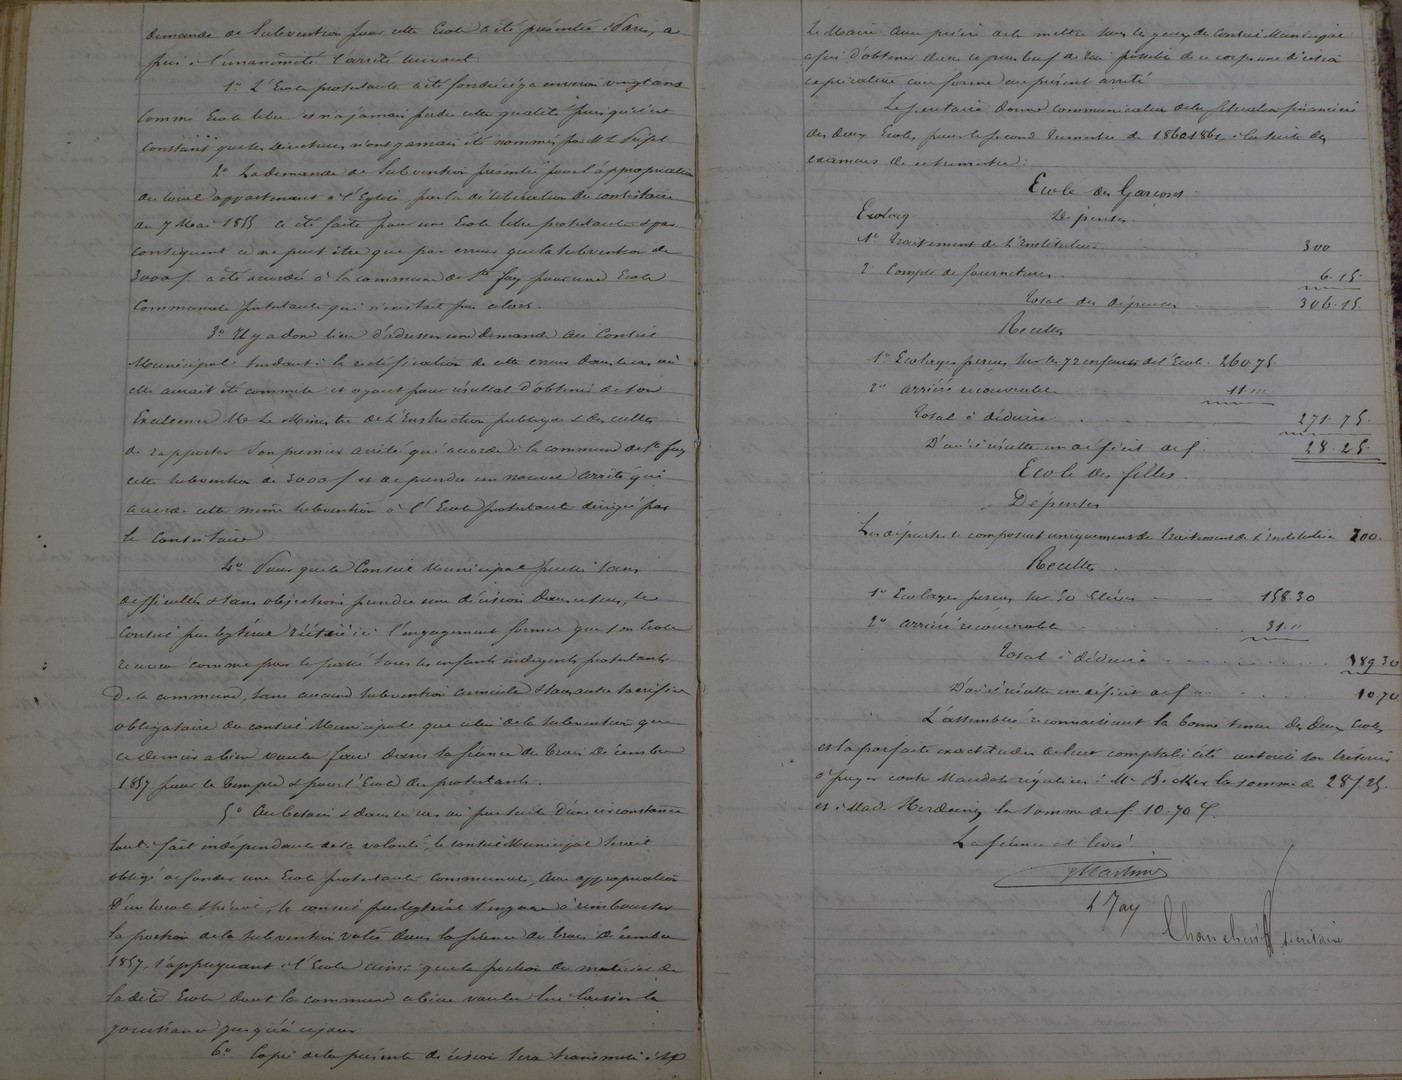 demande de Subvention pour cette Ecole a été présentée à Paris, a
pris à l'unanimité l'arrêté suivant
1° L'Ecole protestante a été fondée il y a environ vingt ans
comme Ecole libre et n'a jamais perdu cette qualité puisqu'il est
constant que les Directeurs n'ont jamais été nommés par M. le Préfet.
2° La demande de Subvention présentée pour l'appropriation
du local appartenant à l'Eglise par la délibération du consistoire
du 7 Mai 1855 a été faite pour une Ecole libre protestante & par
conséquent ce ne peut être que par erreur que la subvention de
3000 f. a été accordée à la commune de Ste foy pour une Ecole
Communale protestante qui n'existait pas alors.
3° Il y a donc lieu d'adresser une demande au Conseil
Municipal tendant à la rectification de cette erreur dans le cas où
elle aurait été commise et ayant pour résultat d'obtenir de Son
Excellence Mr Le Ministre de l'Instruction publique & des cultes
de rapporter son premier arrêté qui accorde à la commune de Ste foy
cette subvention de 3000 f et de prendre un nouvel arrêté qui
accorde cette même subvention à l'Ecole protestante dirigée par
le Consistoire
4° Pour que le Conseil Municipal puisse sans
difficultés & sans objections prendre une décision dans ce sens, le
Conseil presbytéral réitère ici l'engagement formel que son Ecole
recevra comme par le passé tous les enfants indigents protestants
De la commune, sans aucune subvention annuelle & sans autre sacrifice
obligatoire du conseil Municipal que celui de la subvention que
ce dernier a bien voulu faire dans sa séance du trois Décembre
1857 pour le Temple & pour l'Ecole des protestants.
5° Au besoin & dans le cas où par suite d'une circonstance
tout à fait indépendante de sa volonté, le conseil Municipal serait
obligé de fonder une Ecole protestante communale, avec appropriation
D'un local spécial, le conseil presbytéral s'engage à rembourser
la portion de la subvention votée dans la séance du trois décembre
1857, s'appliquant à l'Ecole ainsi que la portion du matériel de
la dite Ecole dont la commune a bien voulu lui laisser la
jouissance jusqu'à ce jour
6° Copie de la présente décision sera transmise à Mr
Le Maire avec prière de la mettre sous les yeux du Conseil Municipal
afin d'obtenir dans le plus bref délai possible de ce corps une décision
conforme au présent arrêté
Le secrétaire donne communication de la situation financière
des deux Ecoles pour le second trimestre de 1860 1861, à la suite des
examens de ce trimestre:
Ecole des Garçons.
Dépenses
1° Traitement de l'Instituteur 300
2° Compte de fournitures 6.15.
Total des dépenses 306.15.
Recettes
1° Ecolages perçus sur les 72 enfants de l'Ecole. 260.75
2° arriéré recouvrable 11 "
Total à déduire 271.75.
D'où il résulte un déficit de f. 28.25.
Ecole des filles.
Dépenses
Les dépenses se composent uniquement du traitement de l'Institutrice 200.
Recettes.
1° Ecolages perçus sur 50 Elèves 158.30
2° arriéré recouvrable 31 "
Total à déduire 189.30
D'où il résulte un déficit de f 10.70
L'assemblée reconnaissant la bonne tenue des deux Ecoles
et la parfaite exactitude de leur comptabilité autorise son trésorier
à payer contre Mandats réguliers à Mr la somme de 28 f 25.
et à Mad. la somme de f. 10.70 c.
La séance est levée.
Martin
L Jay
secrétaire